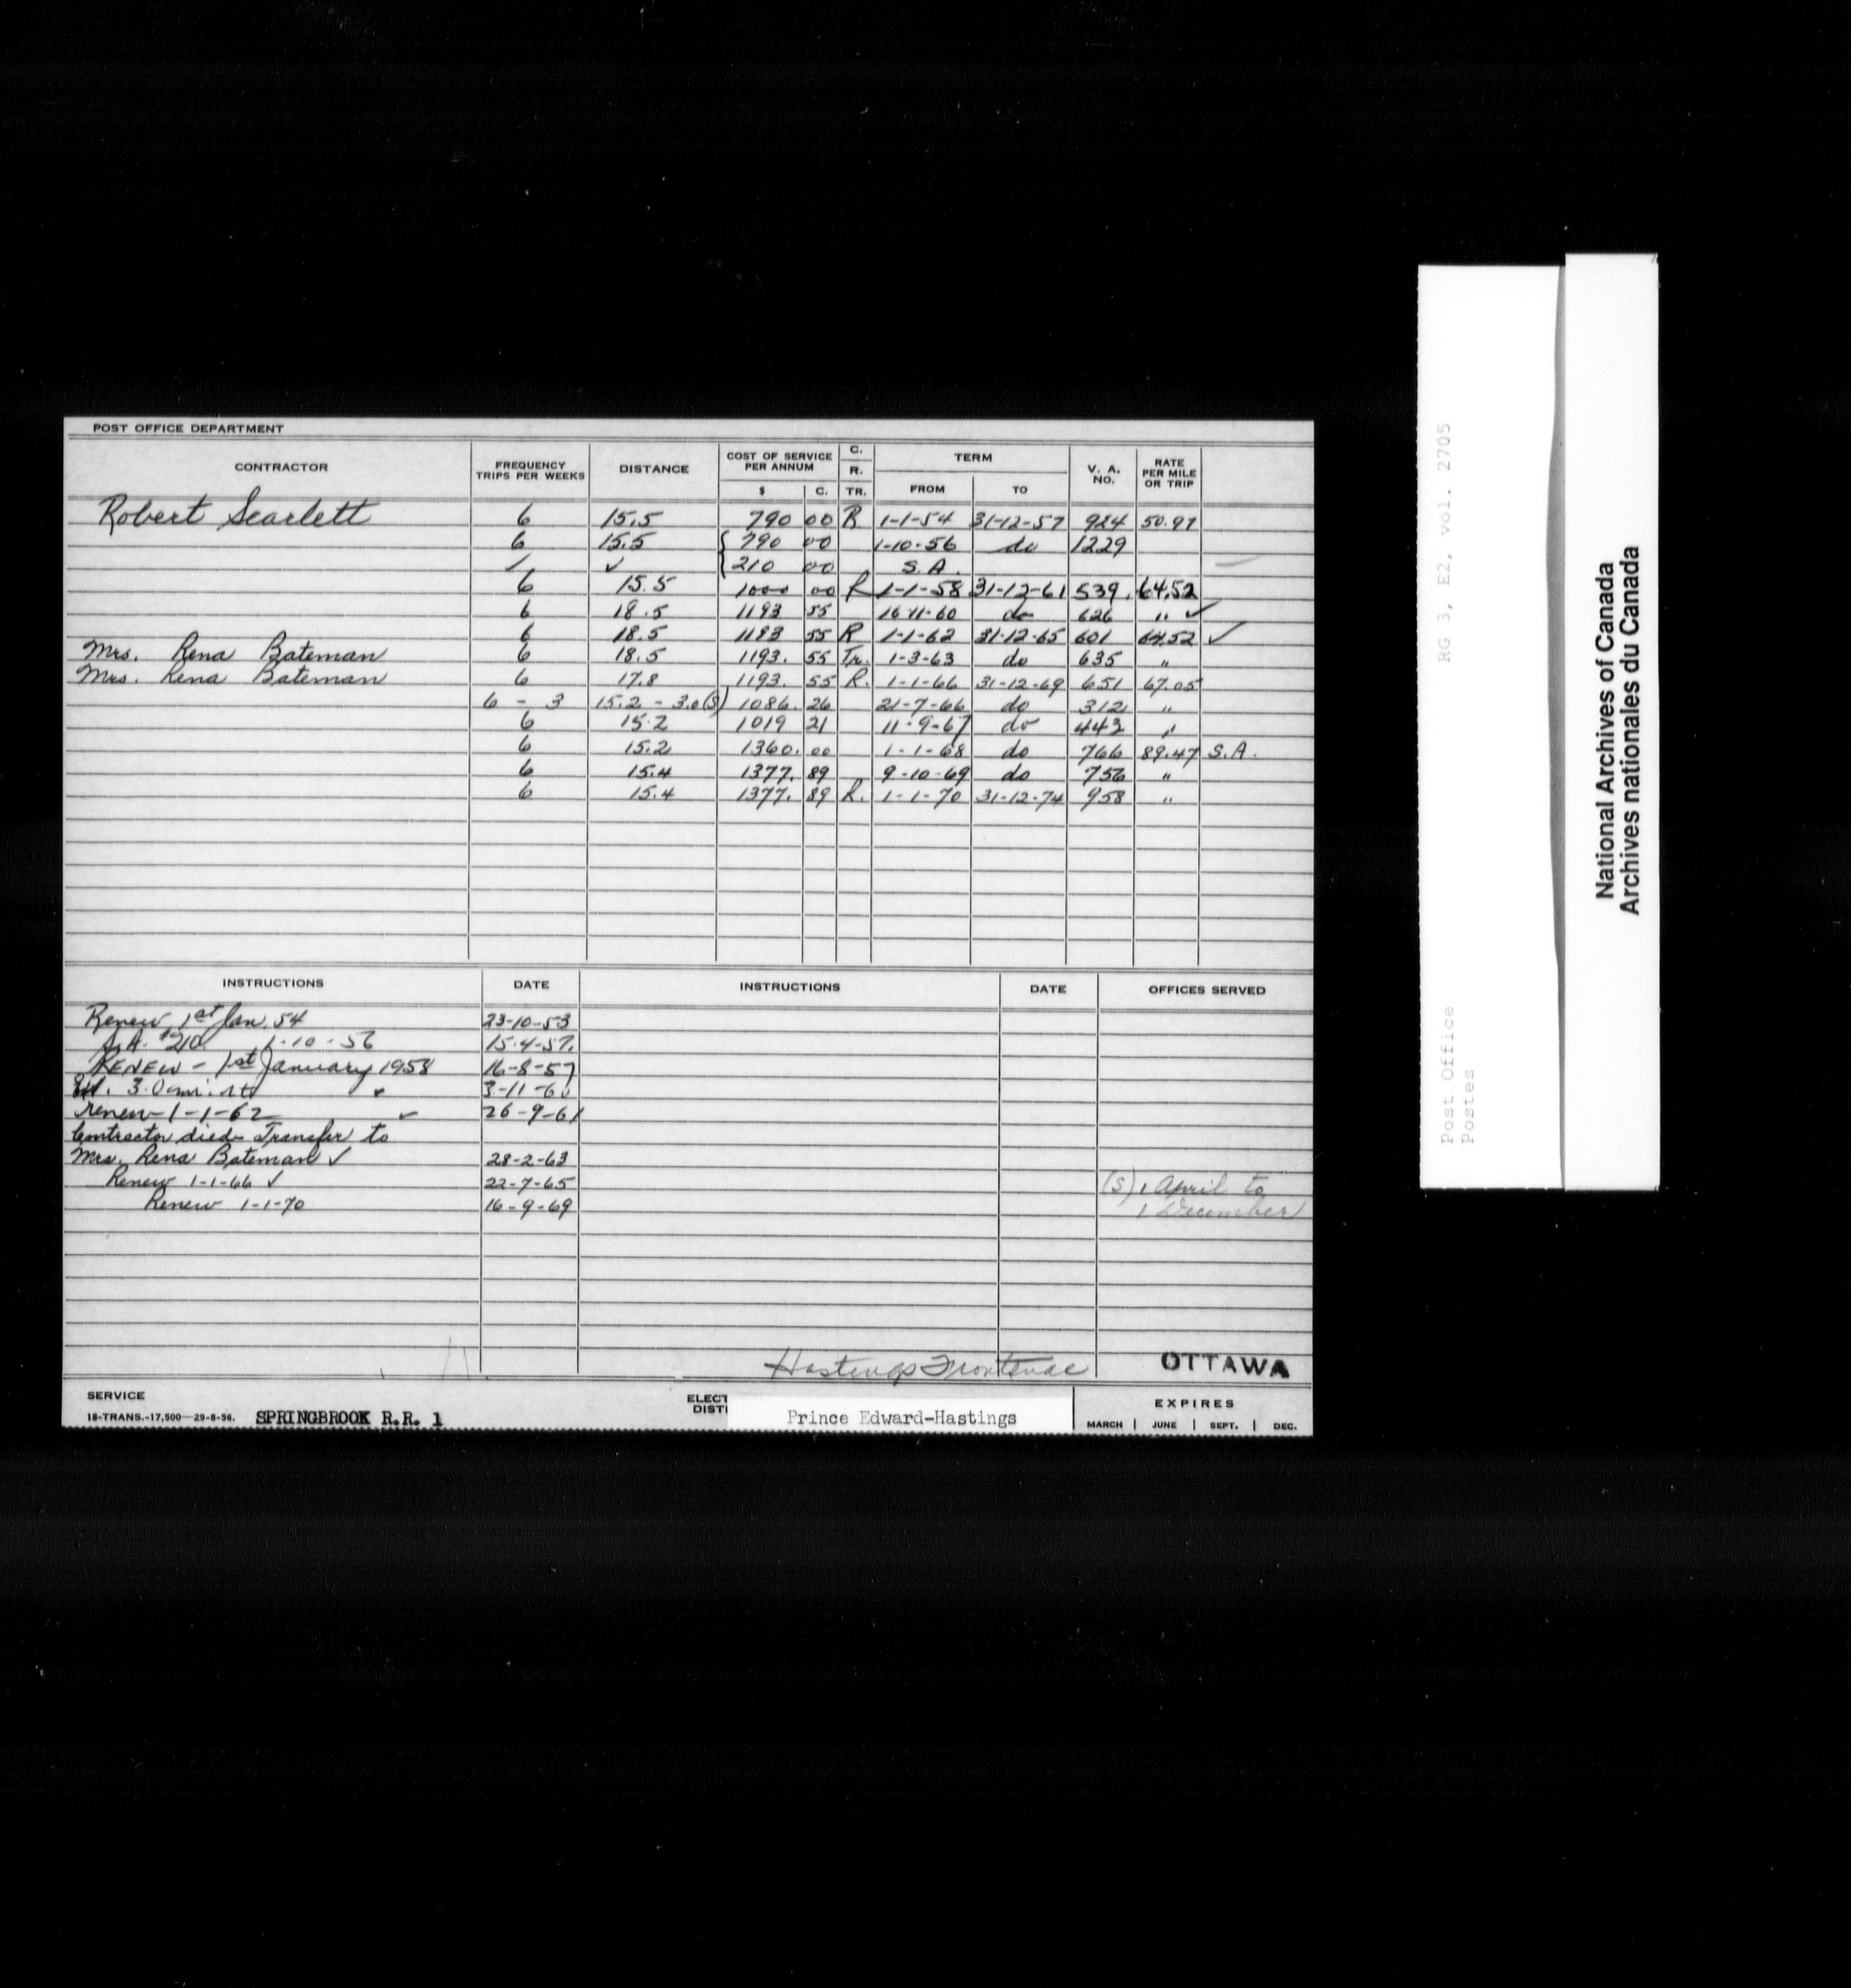 POST OFFICE DEPARTMENT
CONTRACTOR FREQUENCY TRIPS PER WEEKS DISTANCE COST OF SERVICE PER ANNUM $ C. C. R. TR. TERM FROM TO V. A. NO. RATE PER MILE OR TRIP
Robert Scarlett 6 15.5 790 00 R 1-1-54 31-12-57 924 50.97
6 15.5 { 790 00 1-10-56 do 1229
✓ ✓ { 210 00 S.A.
6 15.5 1000 00 R 1-1-58 31-12-61 539. 64.52
6 18.5 1193 55 16-11-60 do 626 " ✓
6 18.5 1193 55 R 1-1-62 31-12-65 601 64.52 ✓
Mrs. Rena Bateman 6 18.5 1193. 55 Tr. 1-3-63 do 635 "
Mrs. Rena Bateman 6 17.8 1193. 55 R. 1-1-66 31-12-69 651 67.05
6 - 3 15.2 - 3.0(S) 1086. 26 21-7-66 do 312 "
6 15.2 1019 21 11-9-67 do 443 "
6 15.2 1360. 00 1-1-68 do 766 89.47 S.A.
6 15.4 1377. 89 9-10-69 do 756 "
6 15.4 1377. 89 R. 1-1-70 31-12-74 958 "
INSTRUCTIONS DATE INSTRUCTIONS DATE OFFICES SERVED
Renew 1st Jan. 54 23-10-53
S.A. $210 1-10-56 15-4-57.
RENEW - 1st January 1958 16-8-57
3.0 mi. 3-11-60
Renew 1-1-62 ✓ 26-9-61
Contractor died Transfer to
Mrs. Rena Bateman ✓ 28-2-63
Renew 1-1-66 ✓ 22-7-65 (S) 1 April to
Renew 1-1-70 16-9-69 1 December
Hastings Frontenac OTTAWA
SERVICE
18-TRANS.-17,500-29-8-56. SPRINGBROOK R.R. 1
ELECT
DISTI
Prince Edward-Hastings
EXPIRES
MARCH | JUNE | SEPT. | DEC.
RG 3, E2, vol. 2705
Post Office
Postes
National Archives of Canada
Archives nationales du Canada